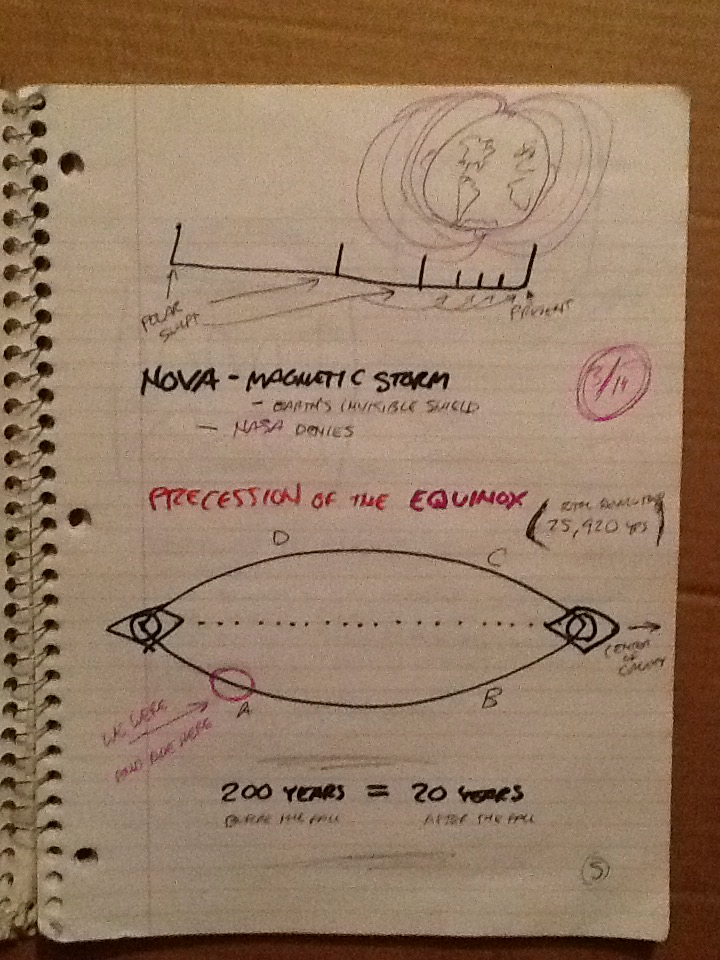 POLAR
SHIFT
PRESENT
NOVA - MAGNETIC STORM
- EARTH'S INVISIBLE SHIELD
- NASA DENIES
3/14
PRECESSION OF THE EQUINOX
25,920 YRS
D
C
CENTER
OF
GALAXY
A
B
WE WERE
HERE
200 YEARS = 20 YEARS
BEFORE THE FALL AFTER THE FALL
5